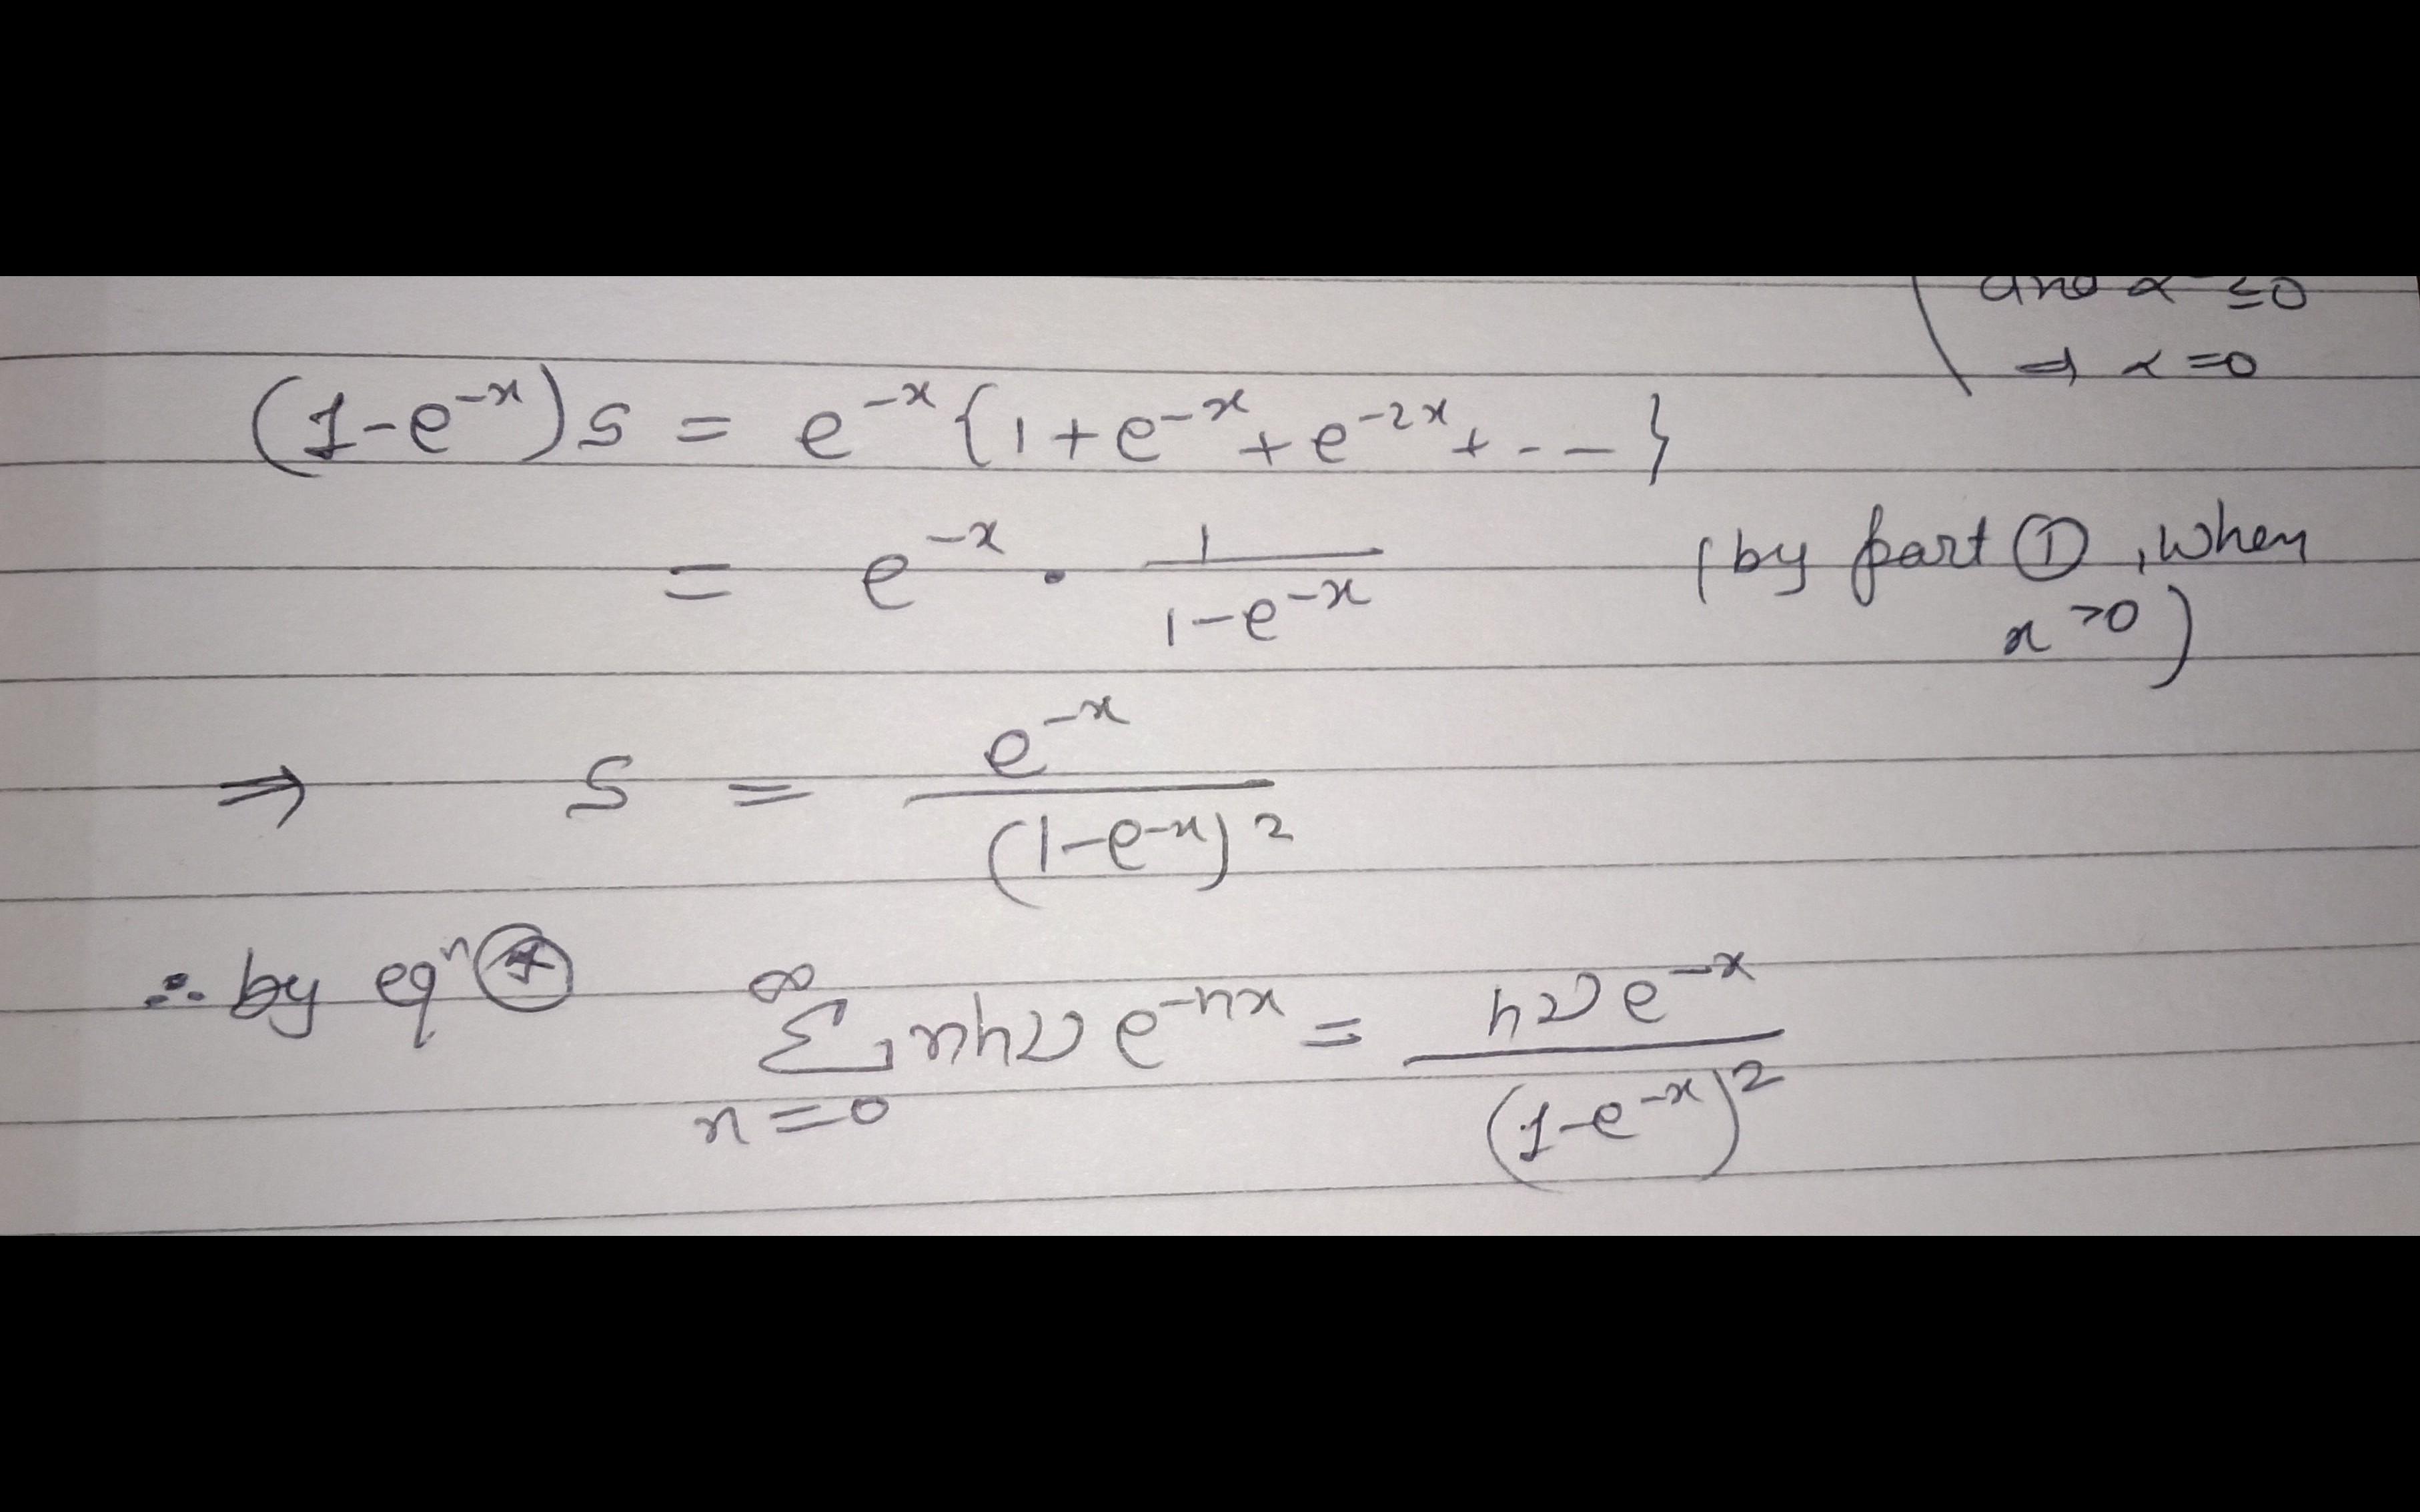 and α ≤0
⇒ α =0
(1-e⁻ˣ)S = e⁻ˣ{1+e⁻ˣ+e⁻²ˣ+---}
= e⁻ˣ · 1/(1-e⁻ˣ) (by part ①, when
x >0)
⇒ S = e⁻ˣ/(1-e⁻ˣ)²
∴ by eqⁿ ⊛ ∑_{n=0}^{∞} nhν e⁻ⁿˣ = hν e⁻ˣ/(1-e⁻ˣ)²